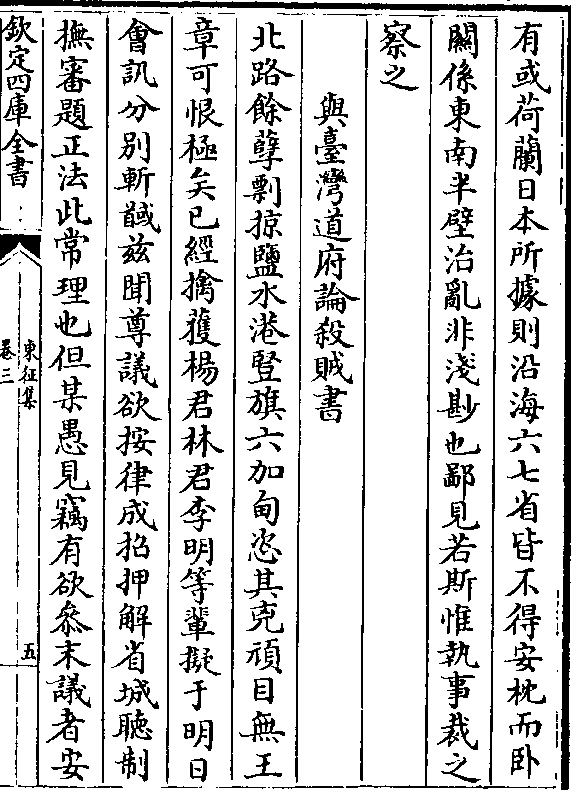 有或荷蘭日本所據則沿海六七省皆不得安枕而卧
關係東南半壁治亂非淺尠也鄙見若斯惟執事裁之
察之
與臺灣道府論殺賊書
北路餘孽剽掠鹽水港豎旗六加甸恣其兇頑目無王
章可恨極矣已經擒獲楊君林君李明等輩擬于明日
會訊分别斬馘兹聞尊議欲按律成招押解省城聽制
撫審題正法此常理也但某愚見竊有欲叅末議者安
欽定四庫全書
東征集
卷三
五